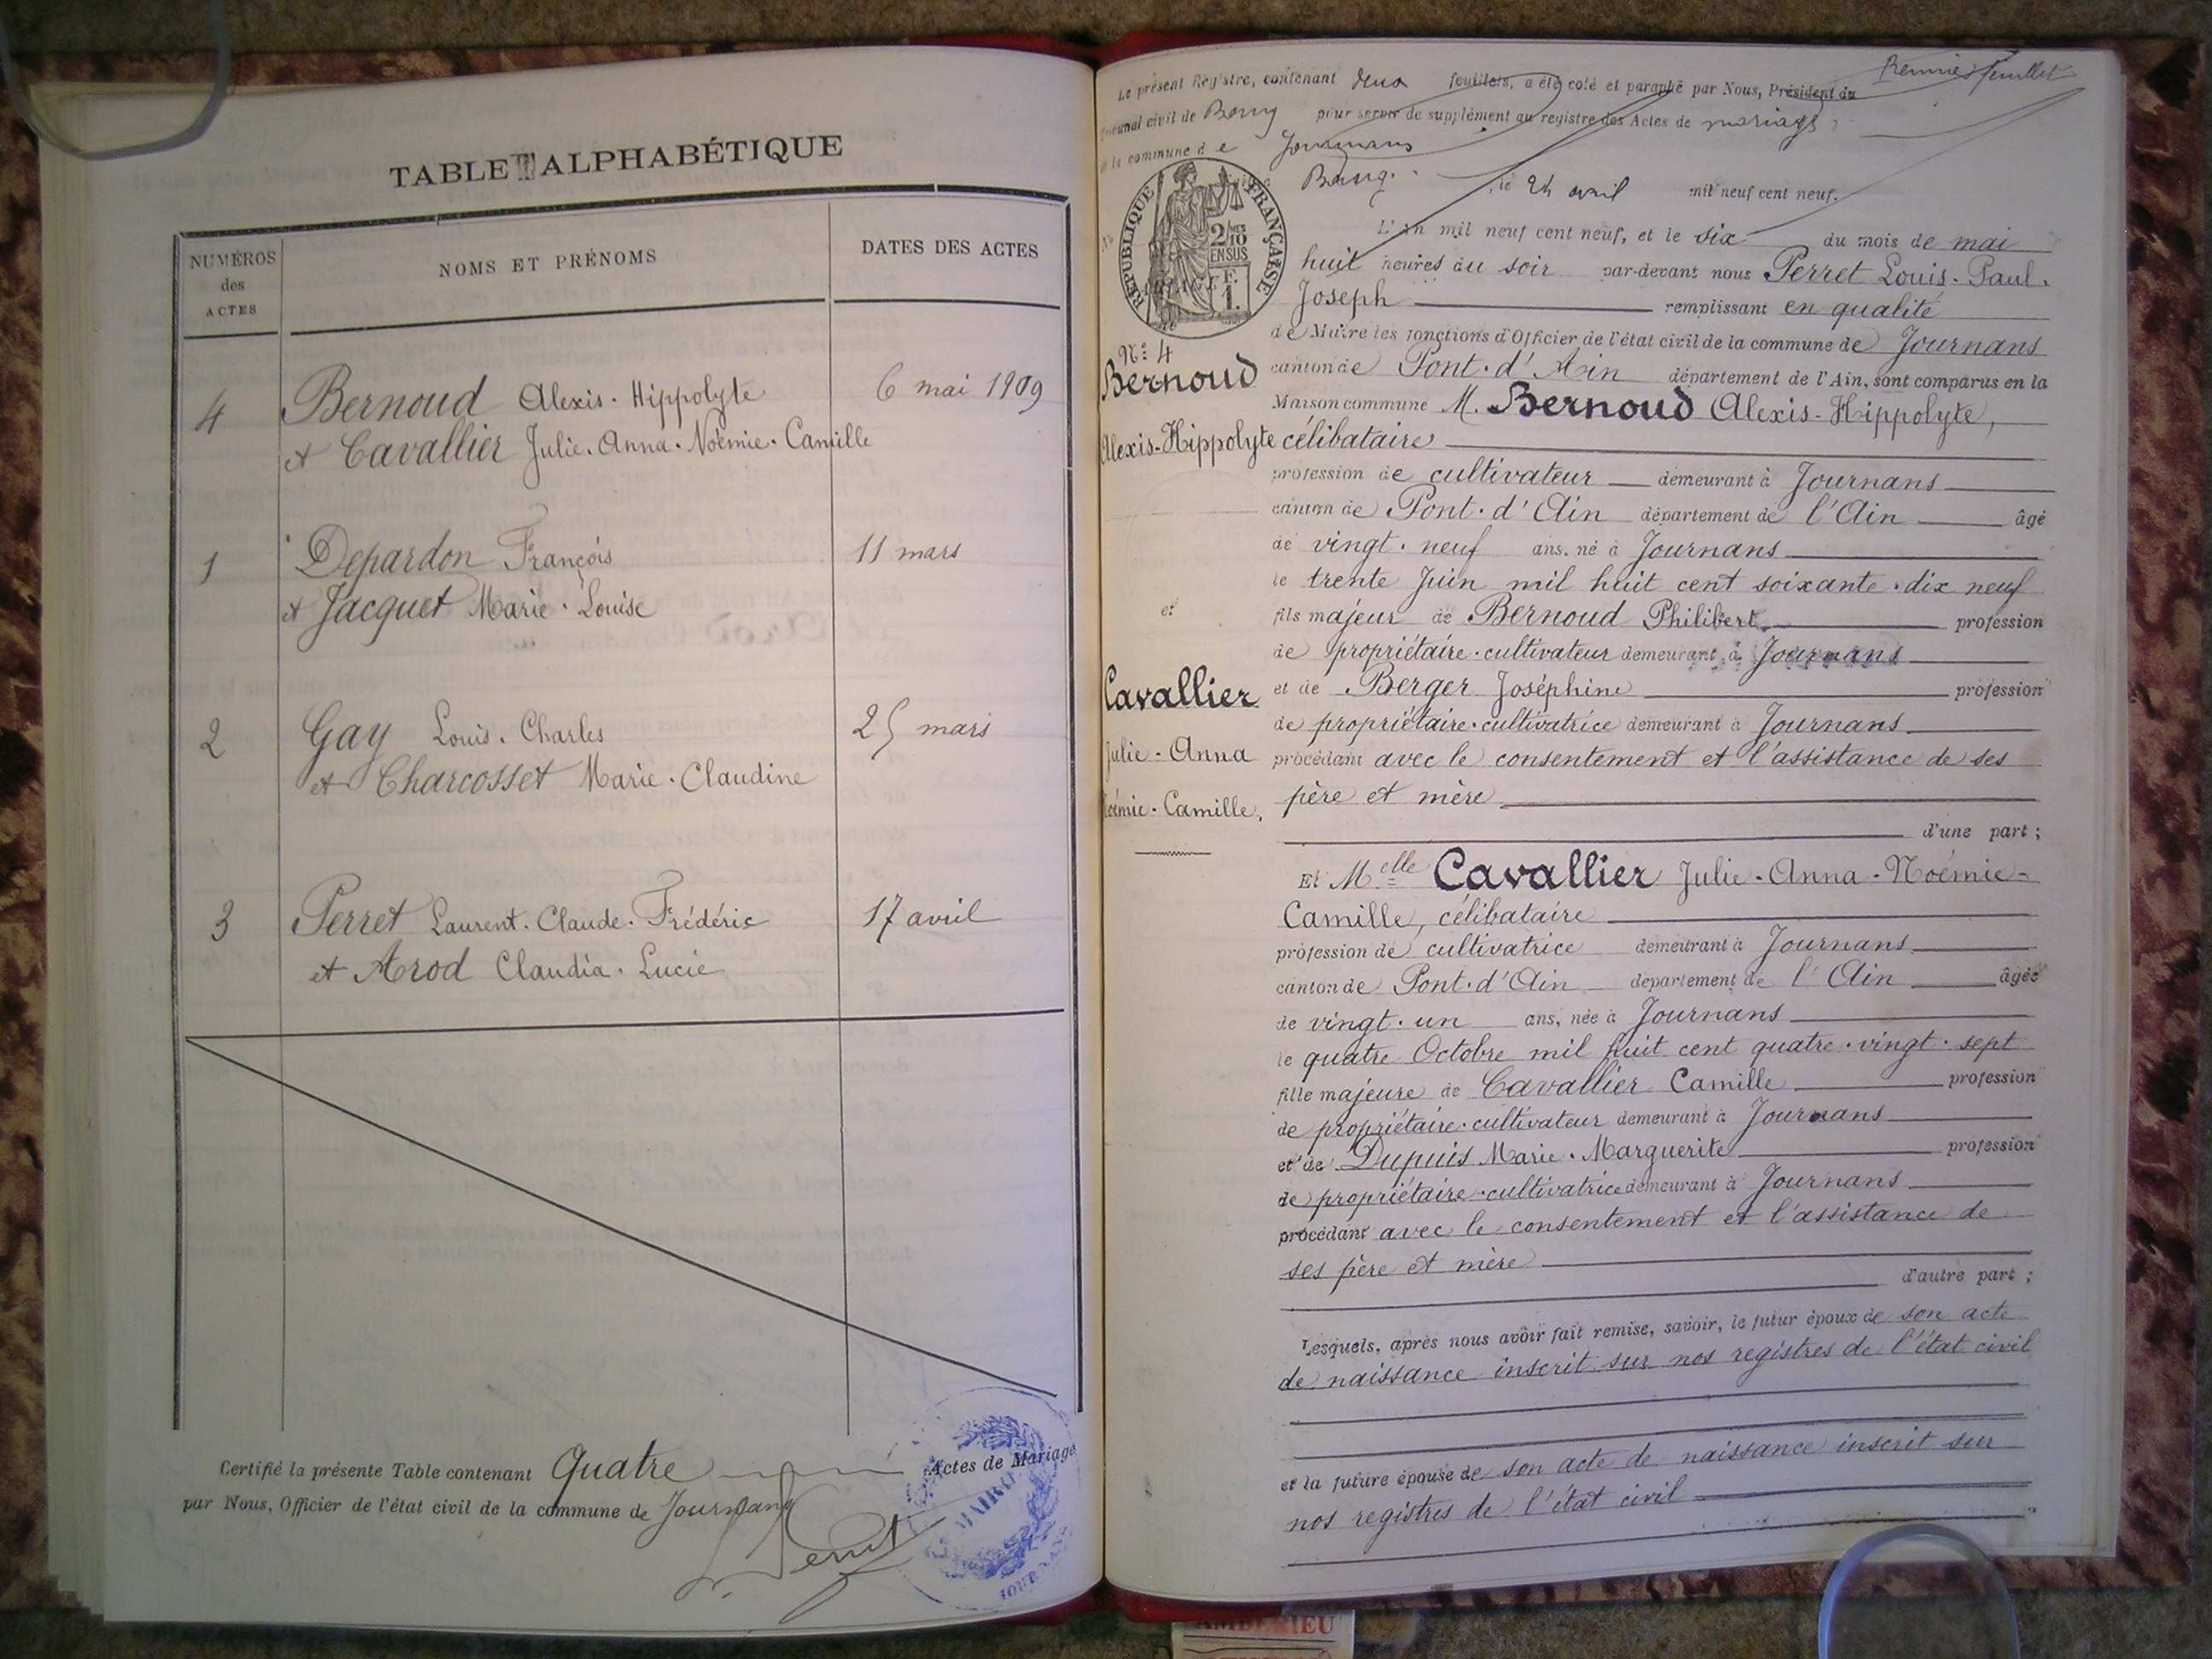 TABLE ALPHABÉTIQUE
NUMÉROS
des
ACTES
NOMS ET PRÉNOMS
DATES DES ACTES
4
Bernoud Alexis-Hippolyte
6 mai 1909
et Cavallier Julie-Anna-Noémie-Camille
1
Depardon François
11 mars
et Jacquet Marie-Louise
2
Gay Louis-Charles
25 mars
et Charcosset Marie-Claudine
3
Perret Laurent-Claude-Frédéric
17 avril
et Arod Claudia-Lucie
Certifié la présente Table contenant Quatre Actes de Mariage
par Nous, Officier de l'état civil de la commune de Journans
L. Perret
MAIRIE
Le présent Registre, contenant deux feuillets, a été coté et paraphé par Nous, Président du
feuillet
Tribunal civil de Bourg pour servir de supplément au registre des Actes de mariage
de la commune de Journans
Bourg, le 24 avril mil neuf cent neuf.
RÉPUBLIQUE FRANÇAISE
2/10
EN SUS
1 F.
L'An mil neuf cent neuf, et le six du mois de mai
huit heures du soir par-devant nous Perret Louis-Paul-
Joseph remplissant en qualité
de Maire les fonctions d'Officier de l'état civil de la commune de Journans
N° 4
Bernoud
Alexis-Hippolyte
et
Cavallier
Julie-Anna
Noémie-Camille,
canton de Pont-d'Ain département de l'Ain, sont comparus en la
Maison commune M. Bernoud Alexis-Hippolyte,
célibataire
profession de cultivateur demeurant à Journans
canton de Pont-d'Ain département de l'Ain âgé
de vingt-neuf ans, né à Journans
le trente Juin mil huit cent soixante-dix neuf
fils majeur de Bernoud Philibert profession
de propriétaire-cultivateur demeurant à Journans
et de Berger Joséphine profession
de propriétaire-cultivatrice demeurant à Journans
procédant avec le consentement et l'assistance de ses
père et mère
d'une part ;
Et Melle Cavallier Julie-Anna-Noémie-
Camille, célibataire
profession de cultivatrice demeurant à Journans
canton de Pont-d'Ain département de l'Ain âgée
de vingt-un ans, née à Journans
le quatre Octobre mil huit cent quatre-vingt-sept
fille majeure de Cavallier Camille profession
de propriétaire-cultivateur demeurant à Journans
et de Dupuis Marie-Marguerite profession
de propriétaire-cultivatrice demeurant à Journans
procédant avec le consentement et l'assistance de
ses père et mère
d'autre part ;
Lesquels, après nous avoir fait remise, savoir, le futur époux de son acte
de naissance inscrit sur nos registres de l'état civil
et la future épouse de son acte de naissance inscrit sur
nos registres de l'état civil